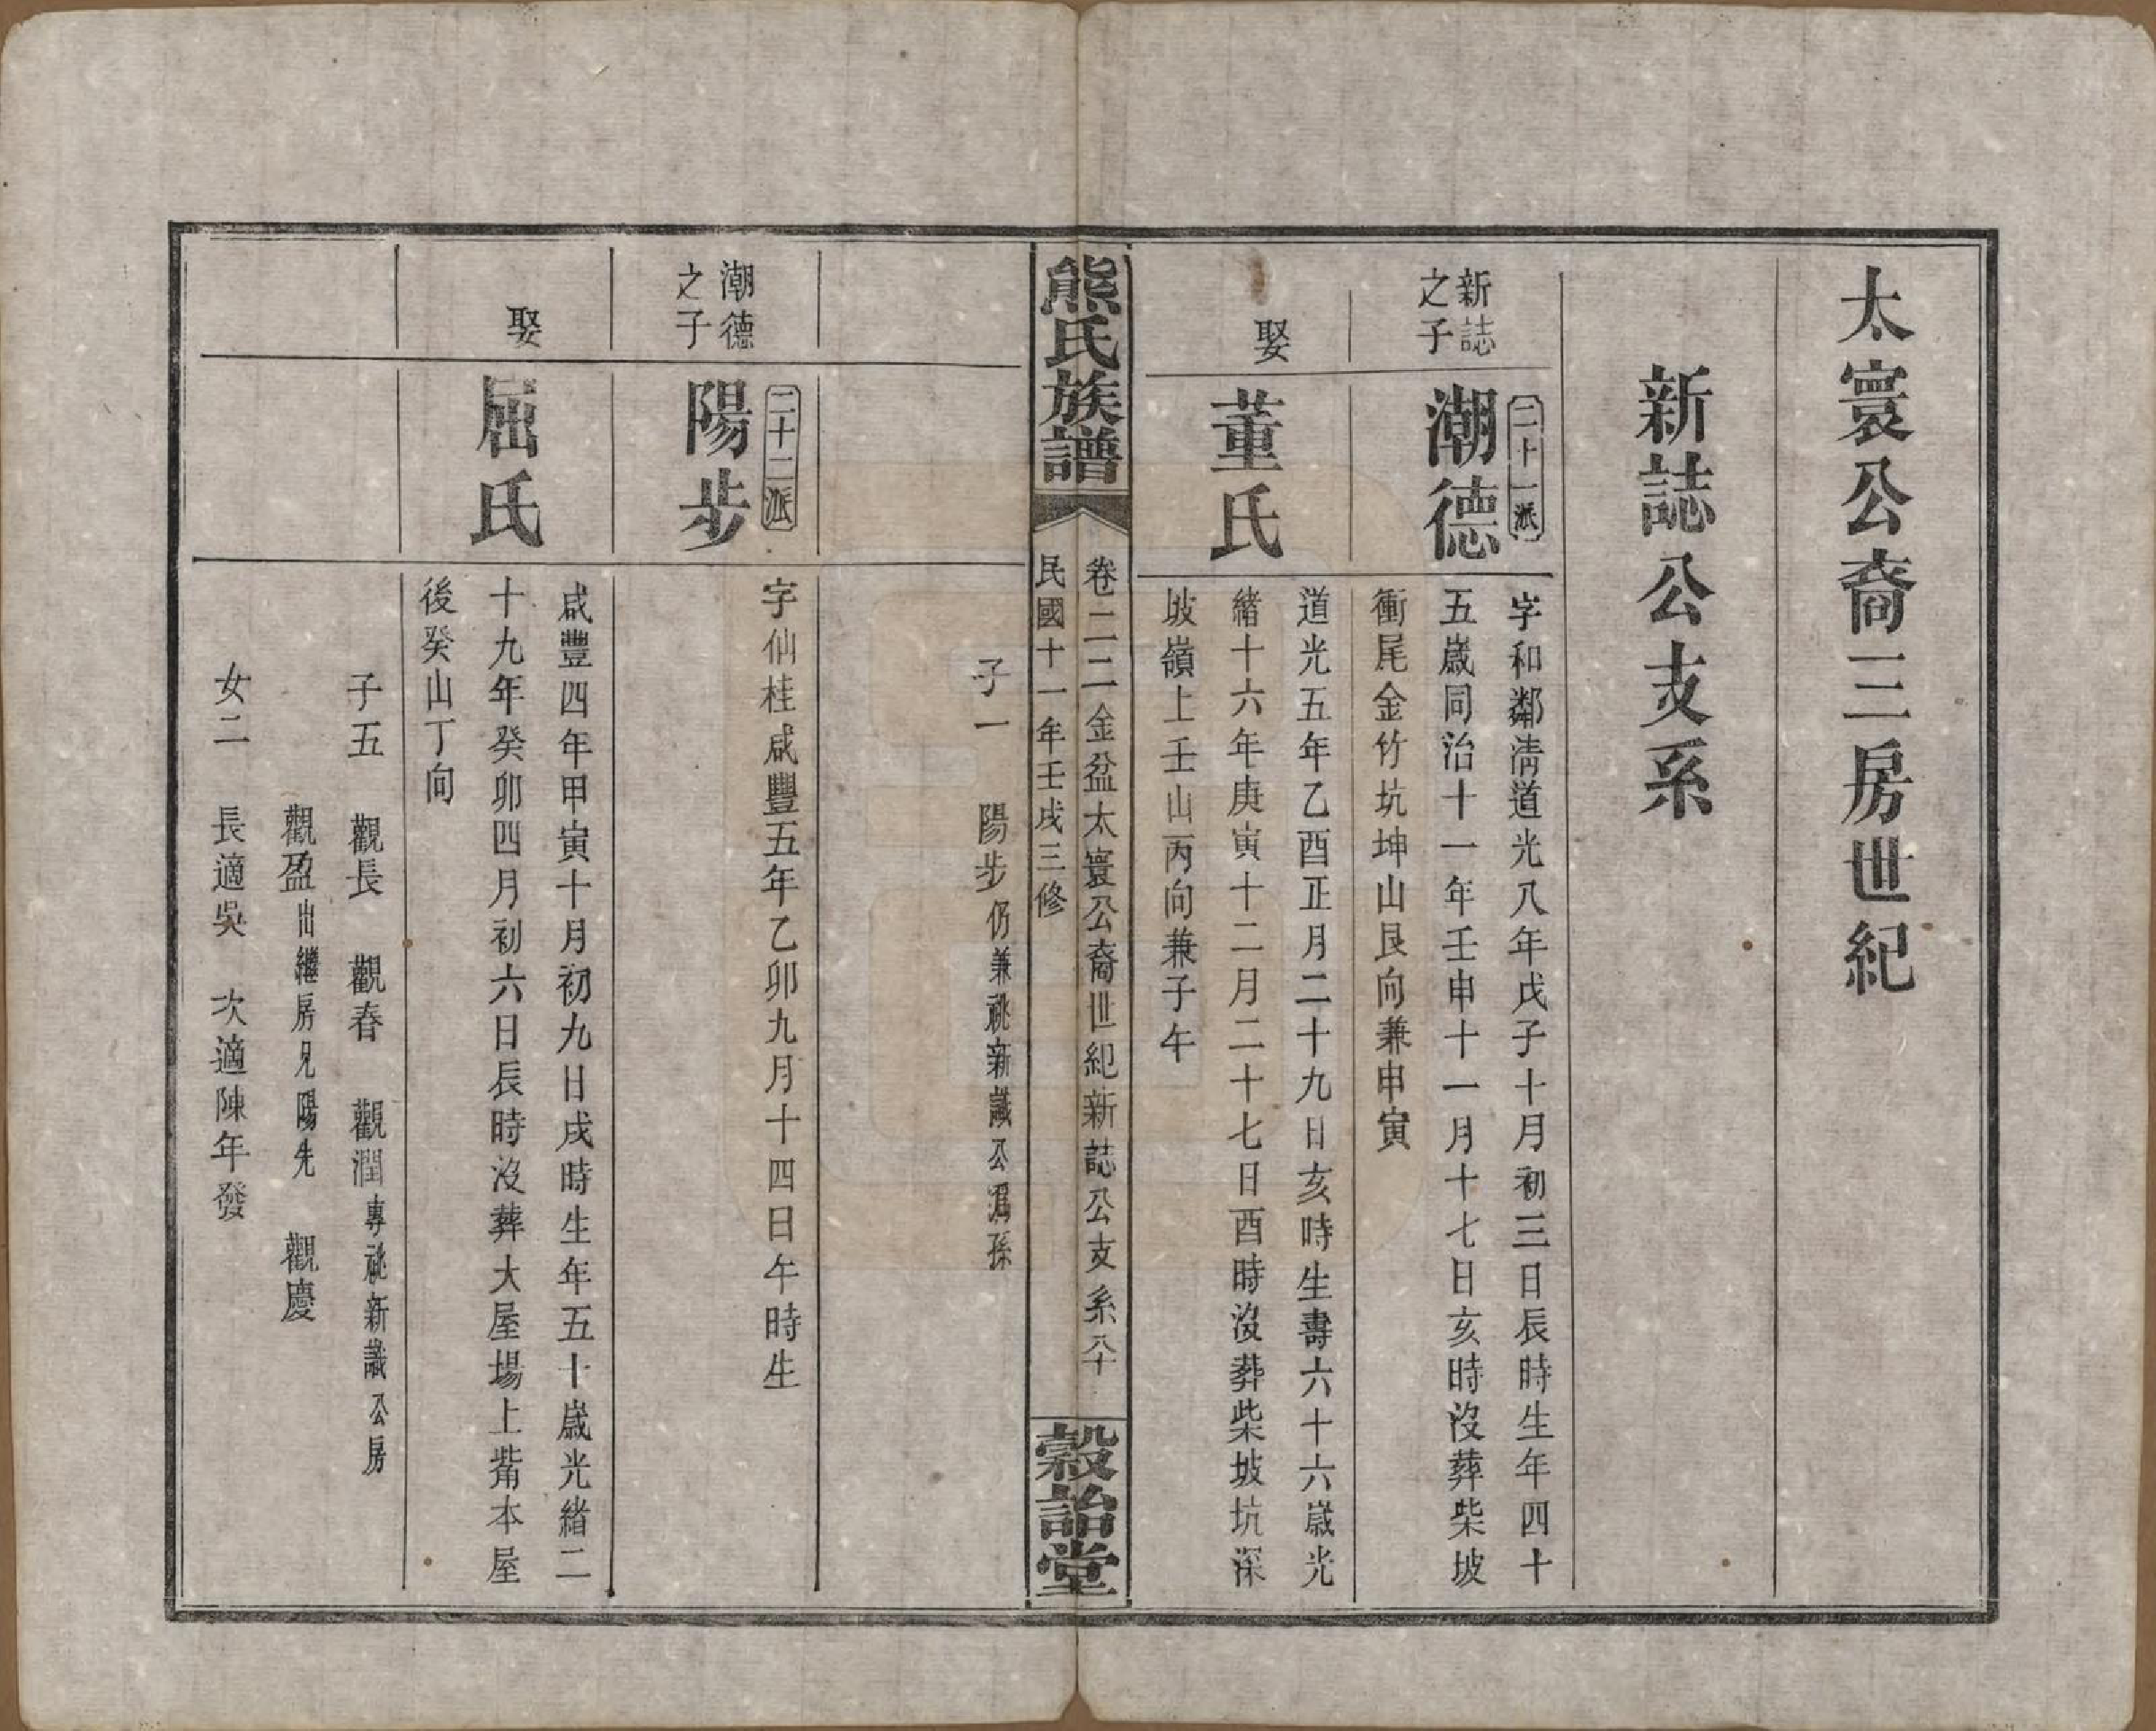 太寰公裔三房世紀
新誌公支系
新誌
之子
二十一派
潮德
字和鄰清道光八年戊子十月初三日辰時生年四十
五歲同治十一年壬申十一月十七日亥時沒葬柴坡
衝尾金竹坑坤山艮向兼申寅
娶
董氏
道光五年乙酉正月二十九日亥時生壽六十六歲光
緒十六年庚寅十二月二十七日酉時沒葬柴坡坑深
坡嶺上壬山丙向兼子午
熊氏族譜
卷二二金盆太寰公裔世紀新誌公支系 八十
民國十一年壬戌三修
穀詒堂
子一 陽步仍兼祧新識公為孫
潮德
之子
二十二派
陽步
字仙桂咸豐五年乙卯九月十四日午時生
娶
屈氏
咸豐四年甲寅十月初九日戌時生年五十歲光緒二
十九年癸卯四月初六日辰時沒葬大屋場上觜本屋
後癸山丁向
子五 觀長 觀春 觀潤專祧新識公房
觀盈出繼房兄陽先 觀慶
女二 長適吳 次適陳年發